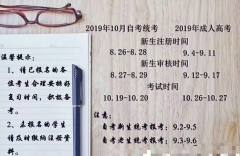 2019年10月自考统考 2019年成人高考
新生注册时间
8.26-8.28 9.4-9.11
新生审核时间
8.27-8.29 9.2-9.13
考试时间
10.19-10.20 10.26-10.27
注意:
自考新生统考报考: 9.2-9.5
自考老生统考报考: 9.3-9.6
温馨提示:
1、请已报名的各
位考生合理安排好
复习时间,积极备
考。
2、未报名的学生
请及时缴纳注册资
料。